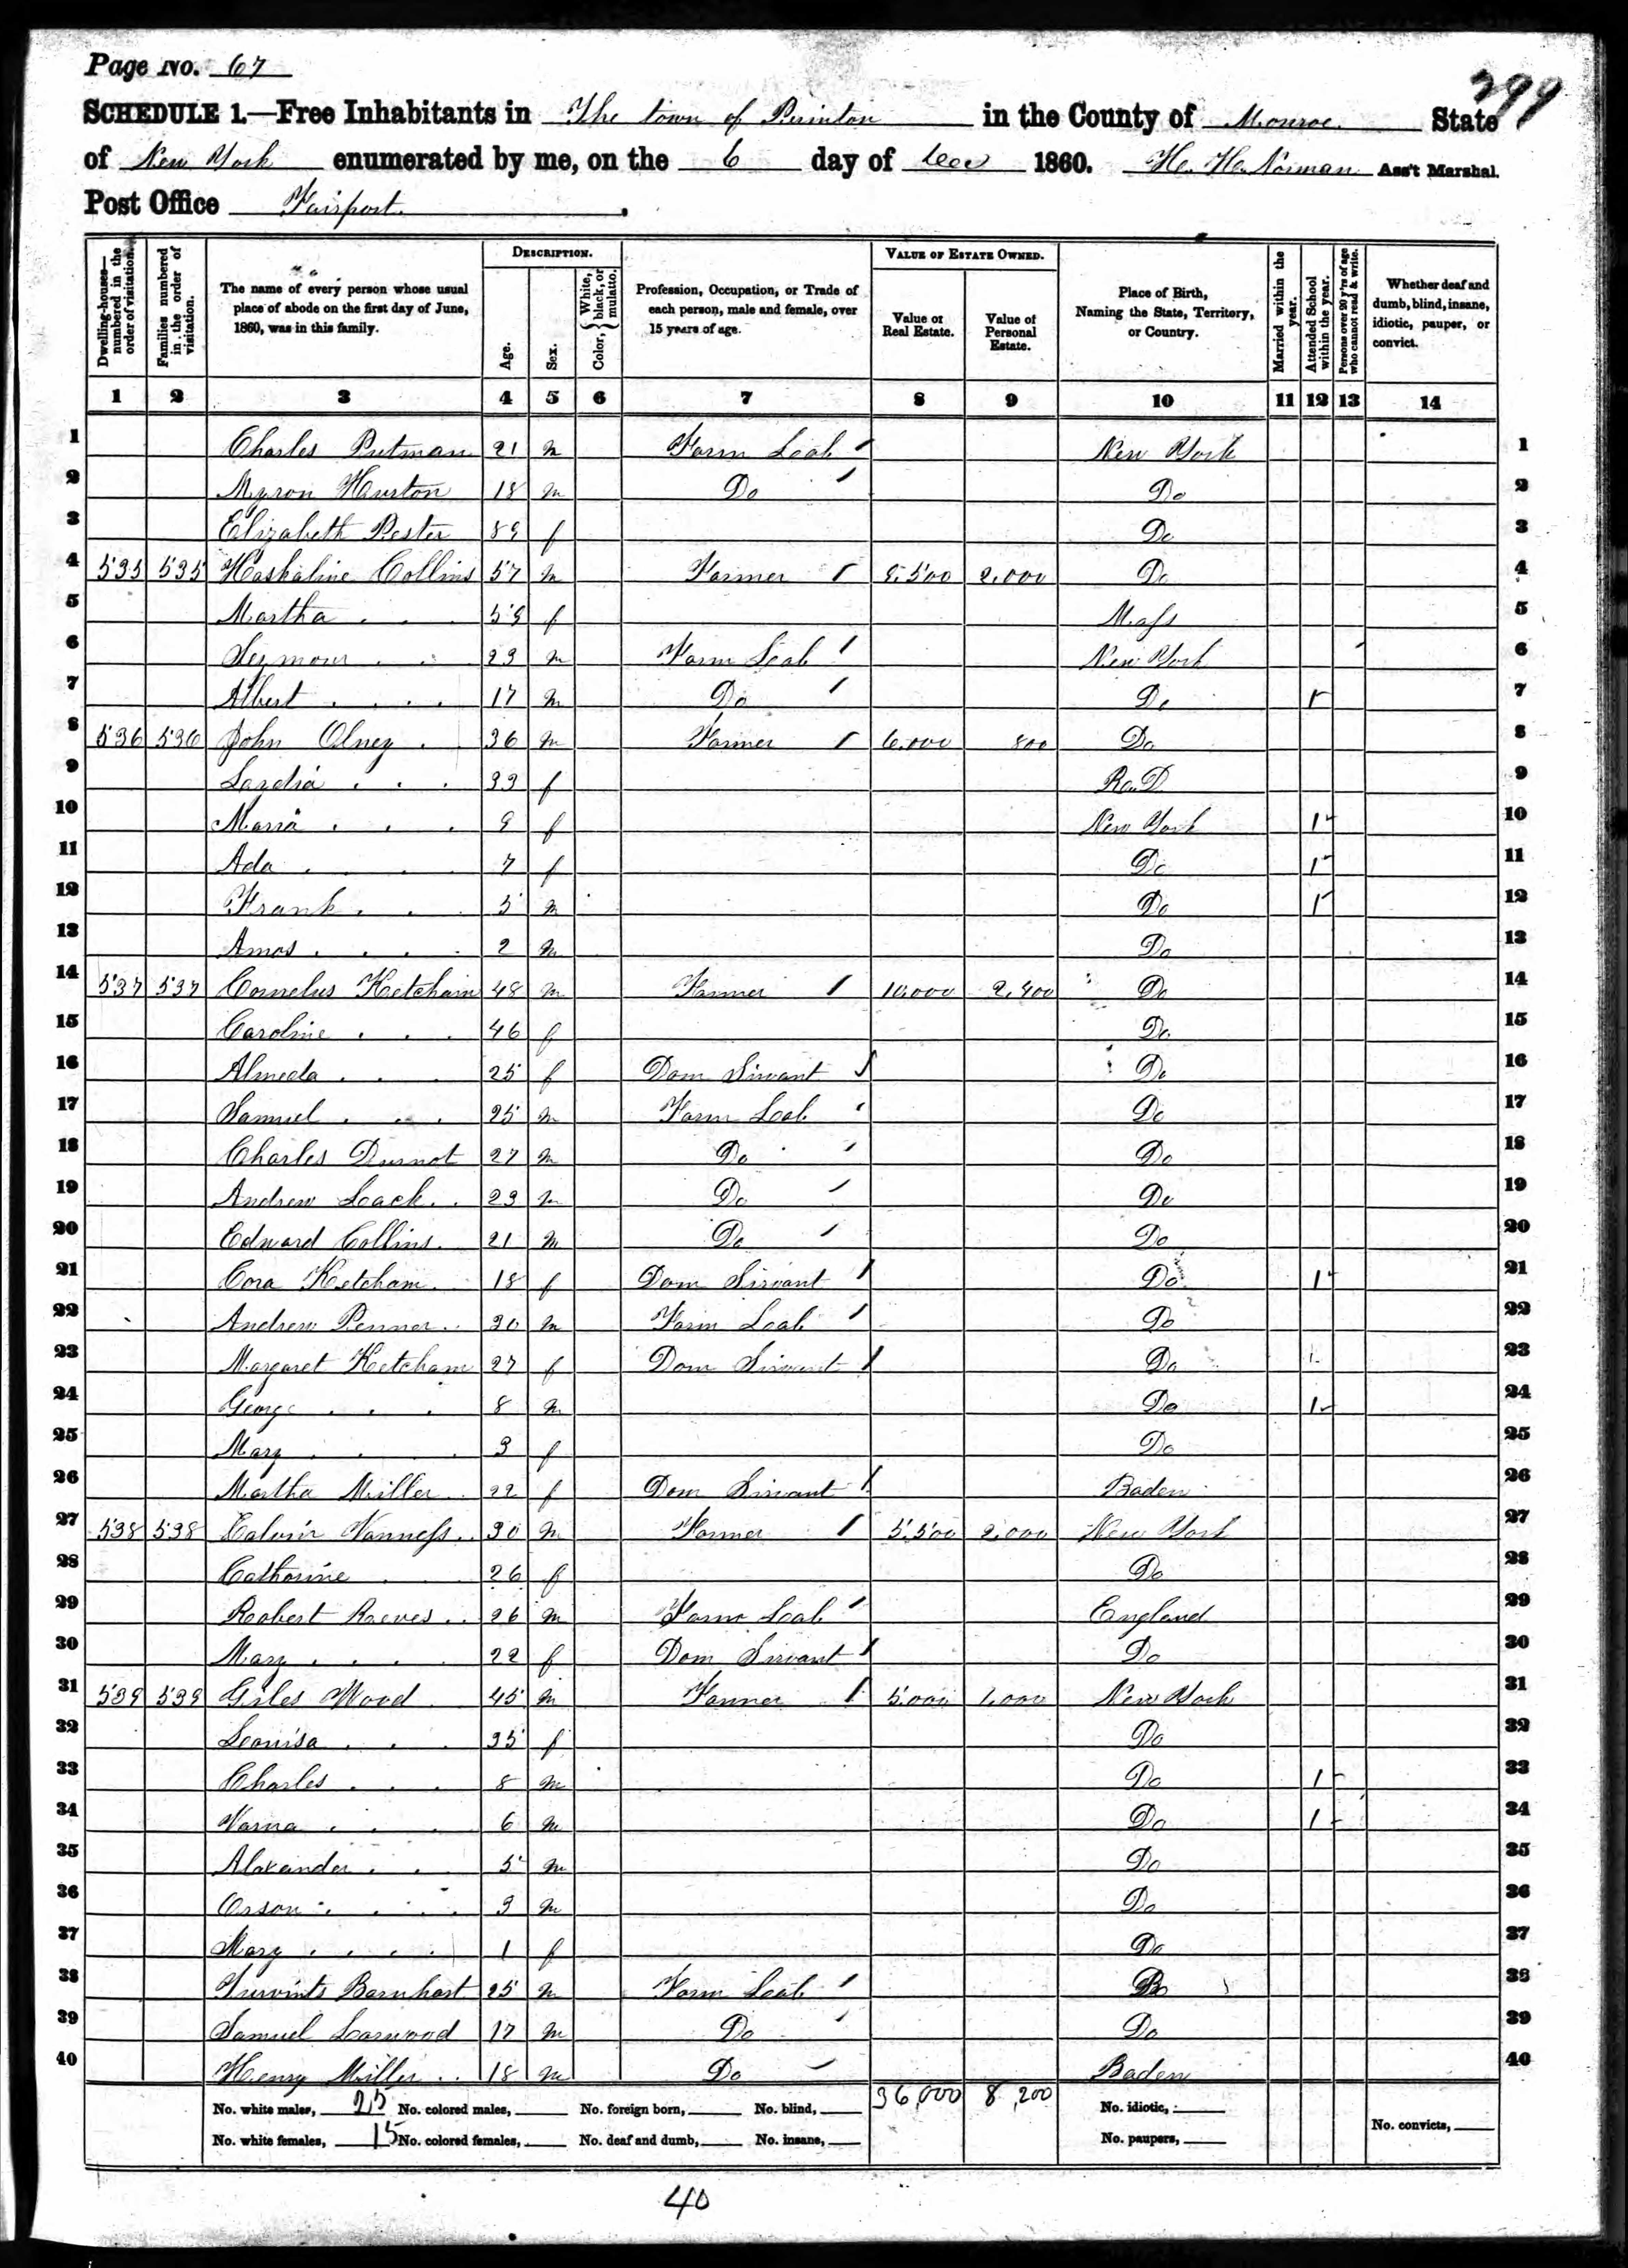 Page No. 67
299
SCHEDULE 1.—Free Inhabitants in The town of Perinton in the County of Monroe State
of New York enumerated by me, on the 6 day of 1860. H. H. Norman Ass't Marshal.
Post Office Fairport.
Dwelling-houses—numbered in the order of visitation. Families numbered in the order of visitation. The name of every person whose usual place of abode on the first day of June, 1860, was in this family. DESCRIPTION. Age. Sex. Color, { White, black, or mulatto. Profession, Occupation, or Trade of each person, male and female, over 15 years of age. VALUE OF ESTATE OWNED. Value of Real Estate. Value of Personal Estate. Place of Birth, Naming the State, Territory, or Country. Married within the year. Attended School within the year. Persons over 20 y'rs of age who cannot read & write. Whether deaf and dumb, blind, insane, idiotic, pauper, or convict.
1 2 3 4 5 6 7 8 9 10 11 12 13 14
1 Charles Putman 21 m Farm Lab / New York 1
2 Myron Hurston 18 m Do / Do 2
3 Elizabeth Pester 89 f Do 3
4 535 535 Collins 57 m Farmer / 8,500 2,000 Do 4
5 Martha . . . 59 f Mass 5
6 Seymour . . 23 m Farm Lab / New York 6
7 Albert . . . . 17 m Do / Do 1 7
8 536 536 John Olney . 36 m Farmer / 6,000 800 Do 8
9 . . . 33 f 9
10 Maria . . . 9 f New York 1 10
11 Ada . . . . 7 f Do 1 11
12 Frank . . . 5 m Do 1 12
13 Amos . . . . 2 m Do 13
14 537 537 Cornelus Ketcham 48 m Farmer / 10,000 2,400 Do 14
15 Caroline . . . 46 f Do 15
16 Almeda . . . 25 f Dom Sirvant / Do 16
17 Samuel . . . 25 m Farm Lab / Do 17
18 Charles Durnot 27 m Do / Do 18
19 Andrew Lack . . 23 m Do / Do 19
20 Edward Collins . 21 m Do / Do 20
21 Cora Ketcham . 18 f Dom Sirvant / Do 1 21
22 Andrew Penner . . 30 m Farm Lab / Do 22
23 Margaret Ketcham 27 f Dom Sirvant / Do 1 23
24 George . . . 8 m Do 1 24
25 Mary . . . 3 f Do 25
26 Martha Miller . 22 f Dom Sirvant / Baden 26
27 538 538 Calvin Vanness . . 30 m Farmer / 5,500 2,000 New York 27
28 Catharine . . 26 f Do 28
29 Robert Reeves . . 26 m Farm Lab / England 29
30 Mary . . . . 22 f Dom Sirvant / Do 30
31 539 539 Giles Wood . 45 m Farmer / 5,000 1,000 New York 31
32 Louisa . . . 35 f Do 32
33 Charles . . . 8 m Do 1 33
34 Varna . . . 6 m Do 1 34
35 Alaxander . . . 5 m Do 35
36 Orson . . . . 3 m Do 36
37 Mary . . . . 1 f Do 37
38 Barnhart 25 m Farm Lab / Do 38
39 Samuel Larwood 17 m Do / Do 39
40 Henry Miller . . 18 m Do / Baden 40
No. white males, 25 No. colored males, No. foreign born, No. blind, 36,000 8,200 No. idiotic,
No. white females, 15 No. colored females, No. deaf and dumb, No. insane, No. paupers, No. convicts,
40